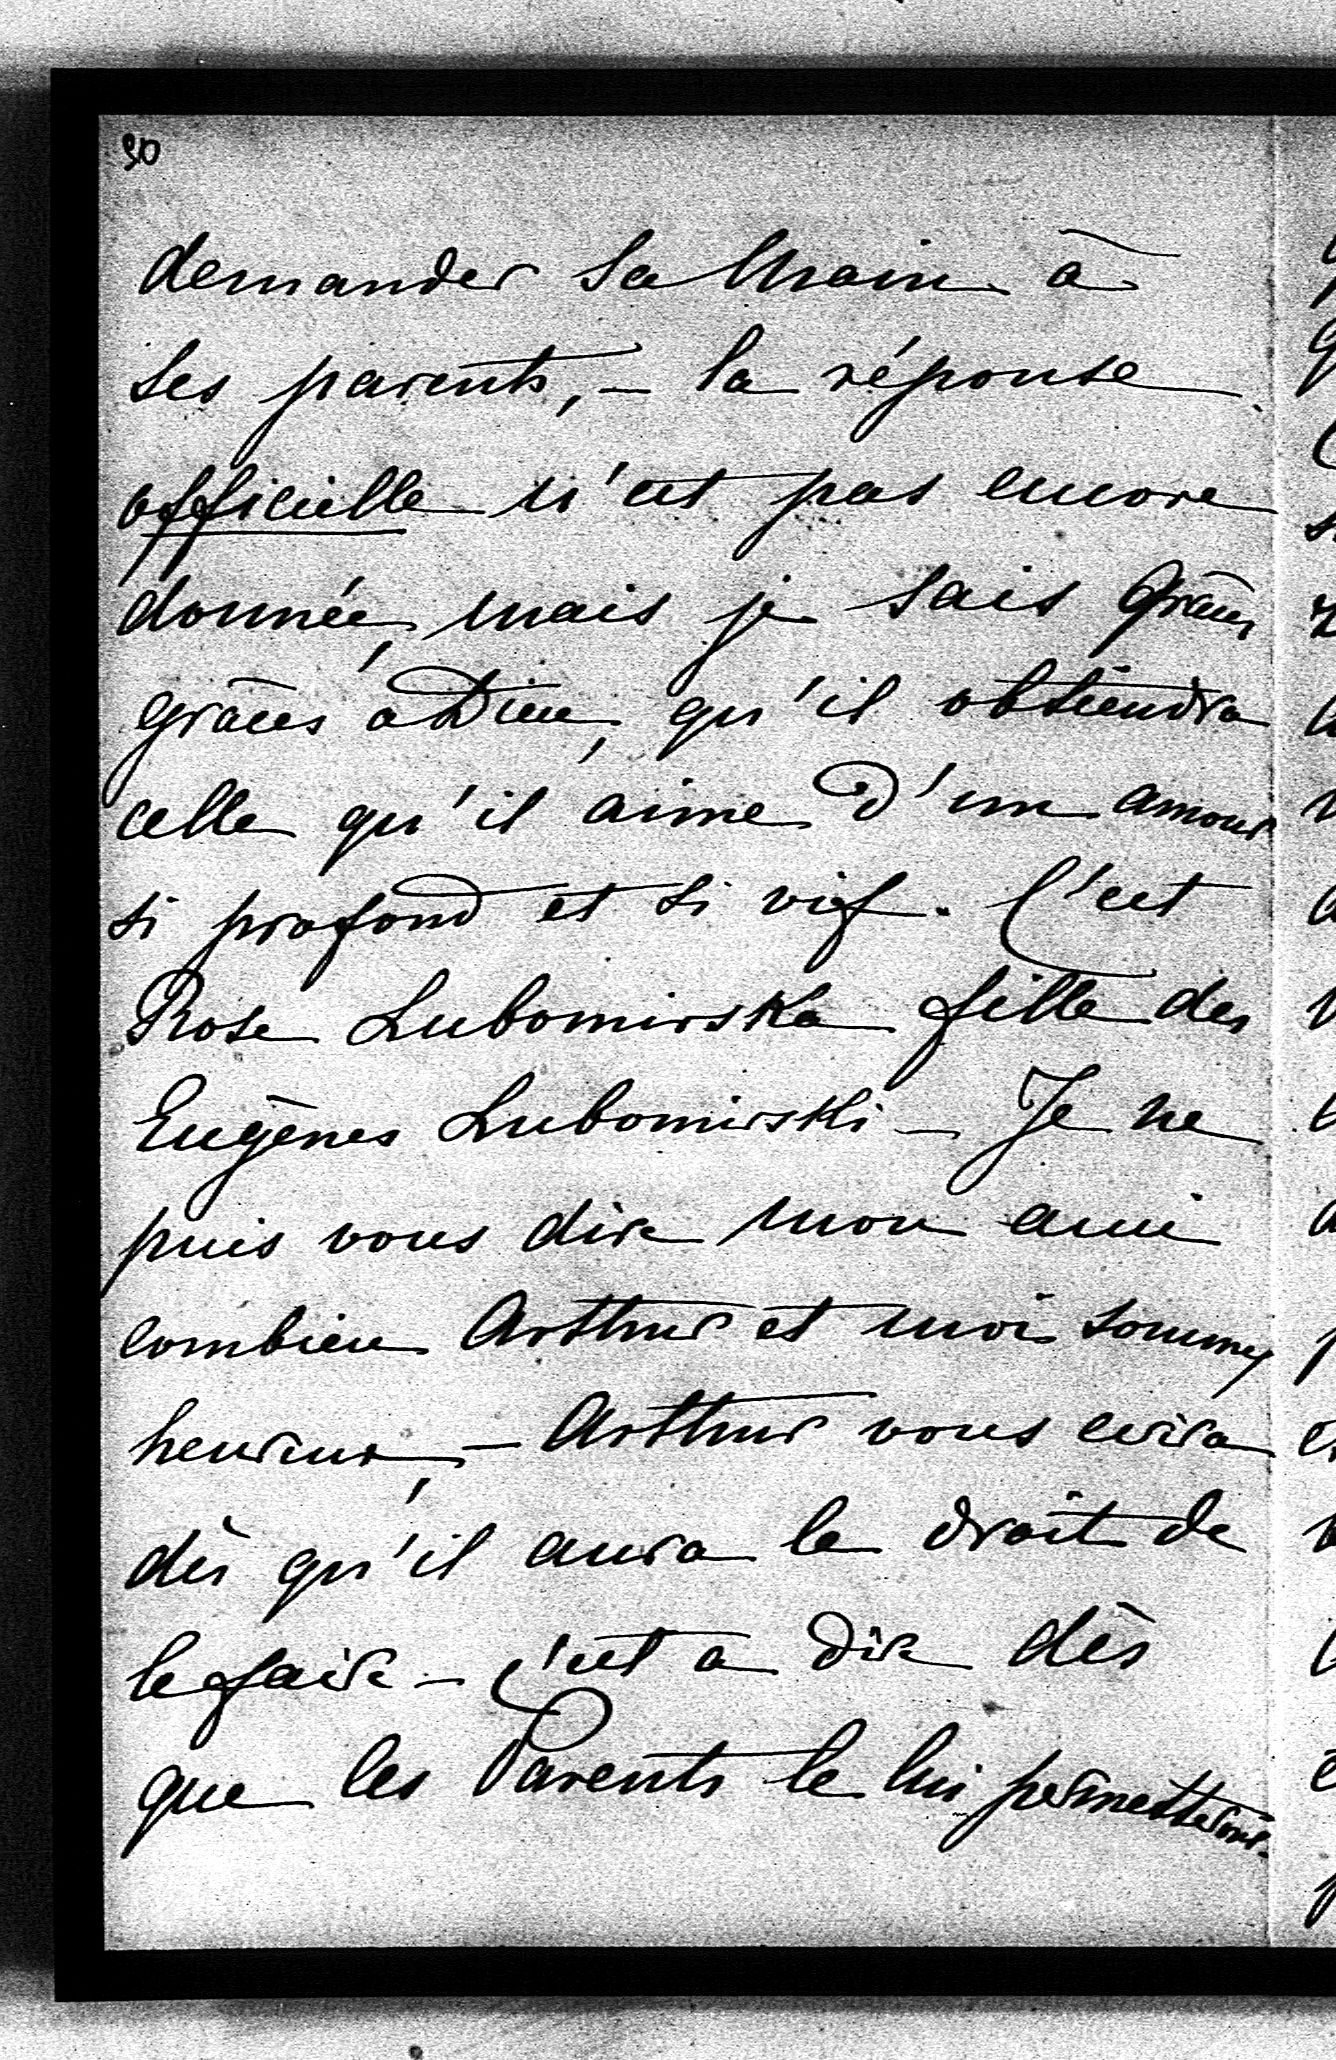 90
demander sa Main à
ses parents, – la réponse
officielle n'est pas encore
donnée, mais je sais grâces
grâces à Dieu, qu'il obtiendra
celle qu'il aime d'un amour
si profond et si vif. C'est
Rose Lubomirska fille des
Eugènes Lubomirski – Je ne
puis vous dire mon ami
combien Arthur et moi sommes
heureux, – Arthur vous ecrira
dès qu'il aura le droit de
le faire – c'est a dire dès
que les Parents le lui permetteront.